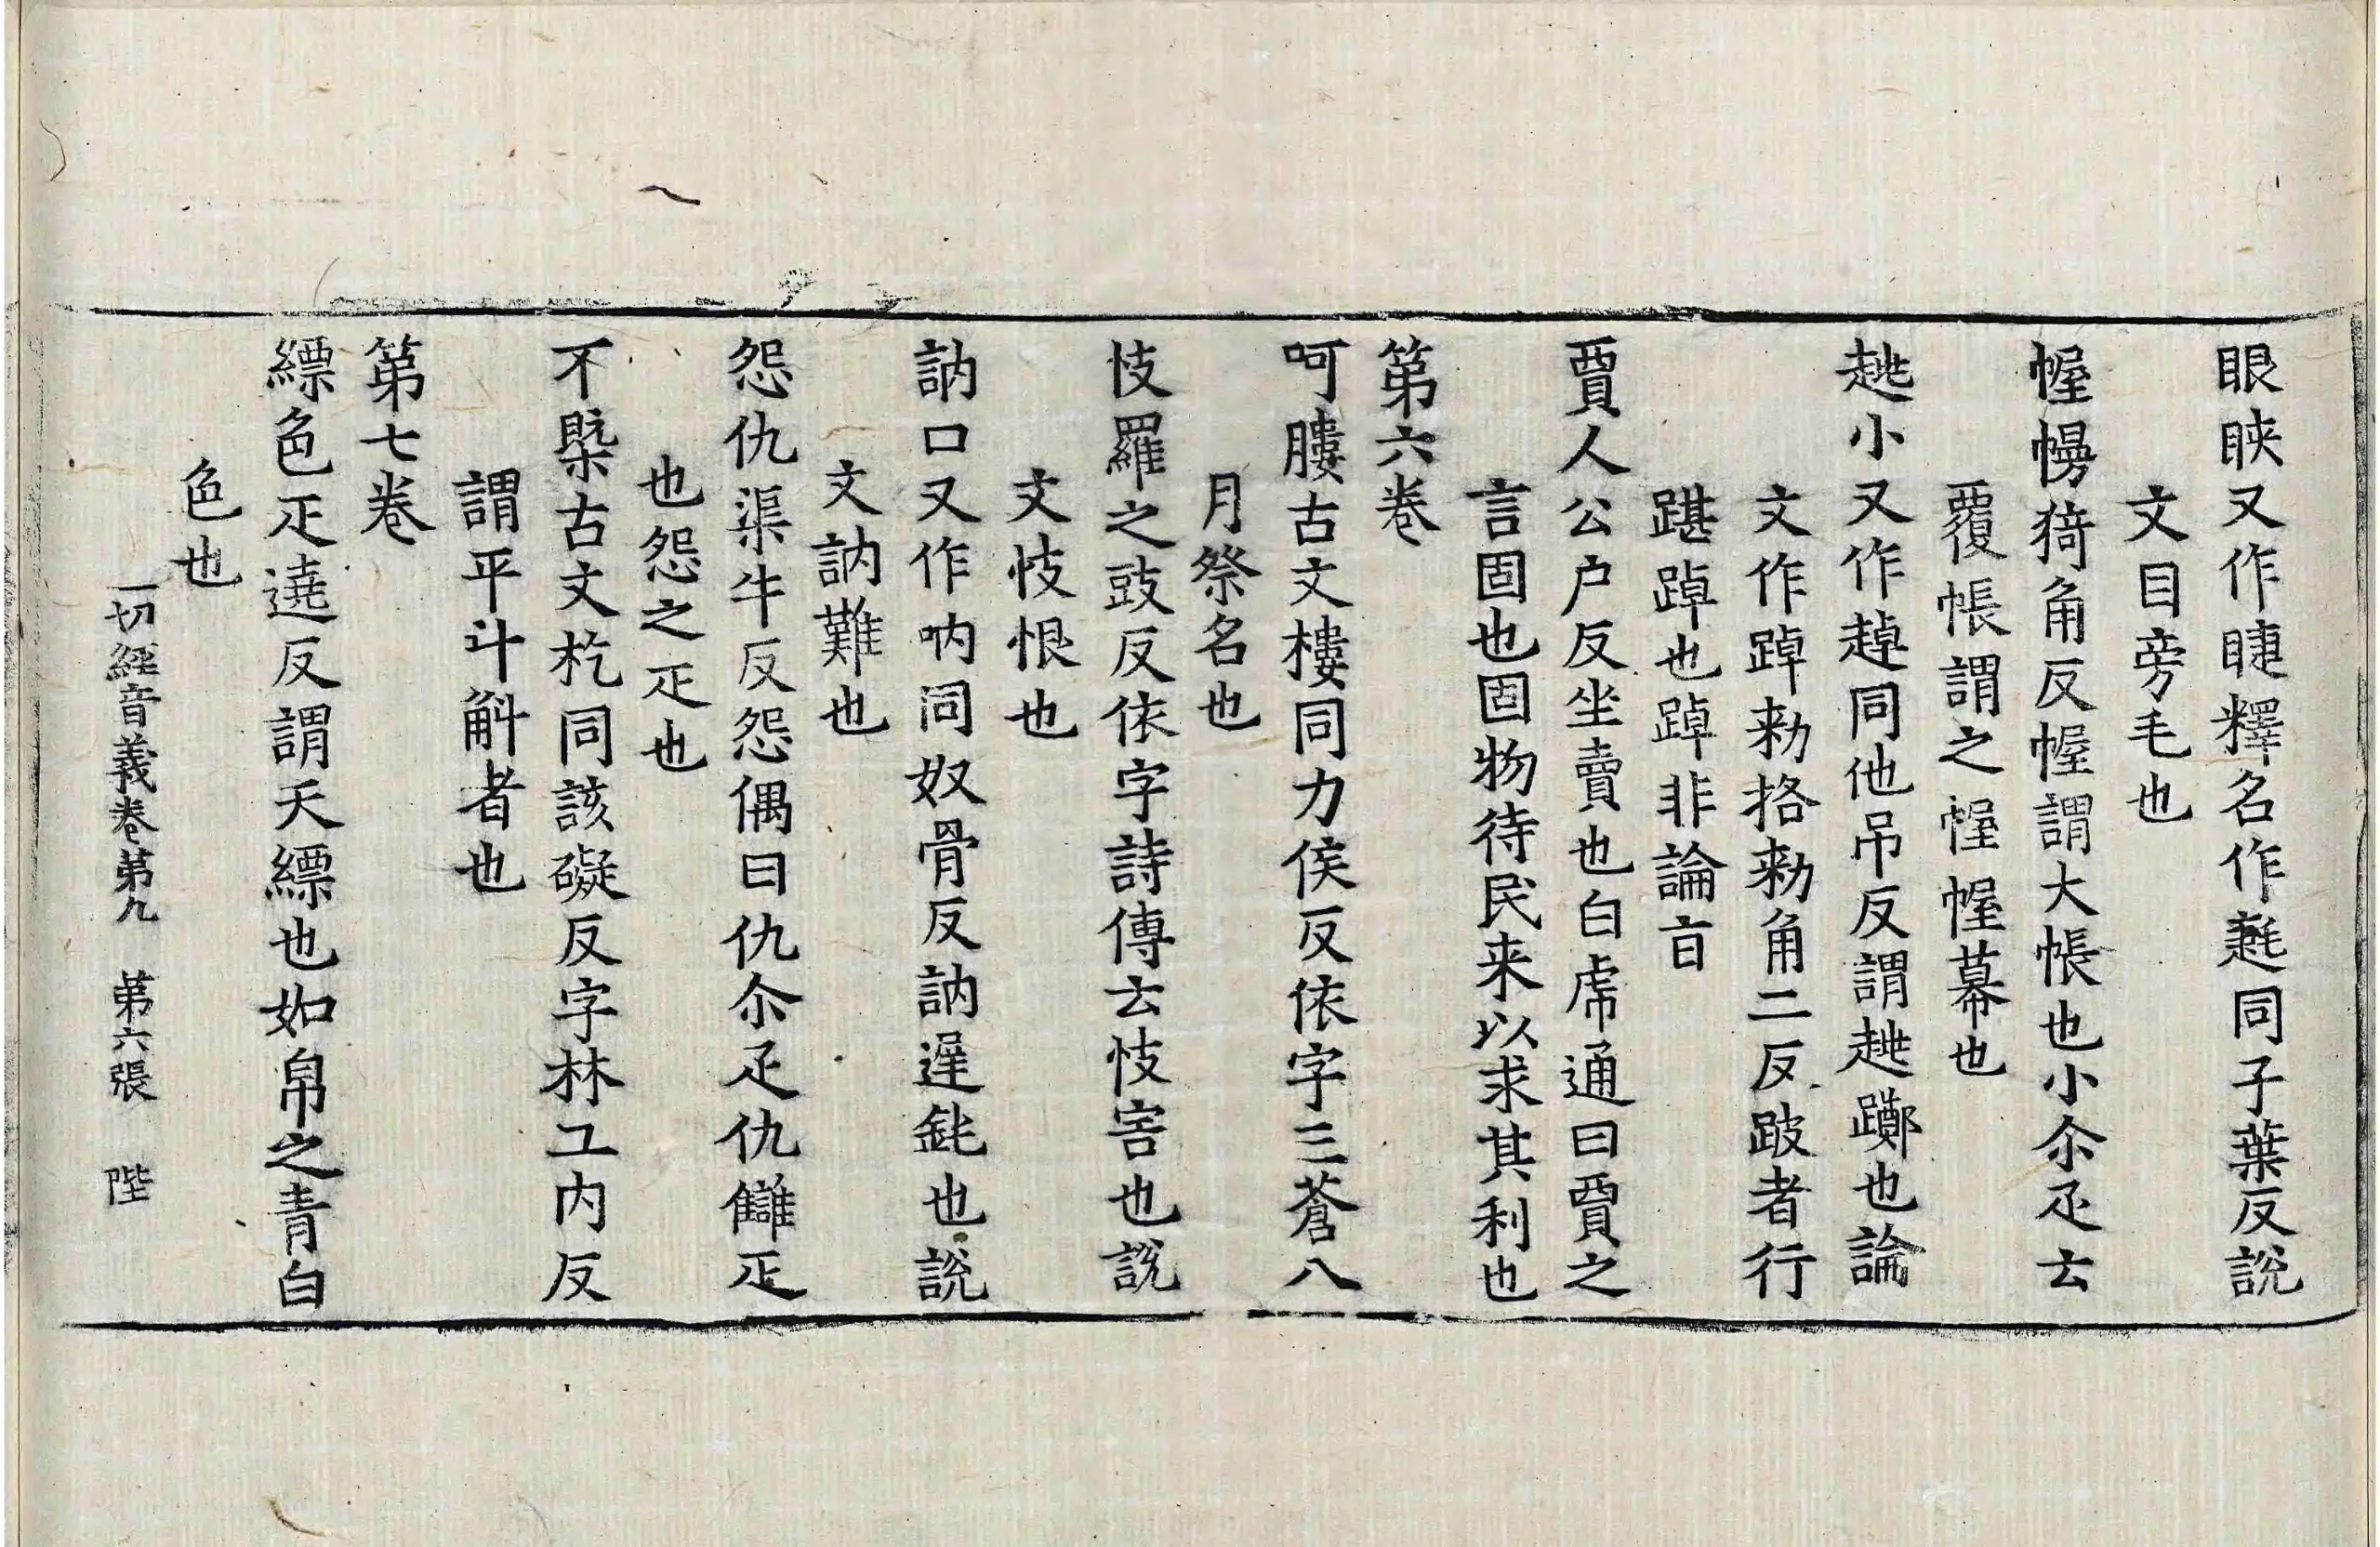 眼䀹又作睫釋名作𣯫同子葉反說
文目旁毛也
幄幔猗角反幄謂大帳也小尒疋云
覆帳謂之幄幄幕也
趒小又作趠同他吊反謂趒躑也論
文作踔勑挌勑角二反跛者行
踸踔也踔非論旨
賈人公户反坐賣也白虎通曰賈之
言固也固物待民来以求其利也
第六卷
呵膢古文㡞同力侯反依字三蒼八
月祭名也
忮羅之豉反依字詩傳云忮害也說
文忮恨也
訥口又作吶同奴骨反訥遲鈍也說
文訥難也
怨仇渠牛反怨偶曰仇尒疋仇讎疋
也怨之疋也
不槩古文杚同該礙反字林工内反
謂平斗斛者也
第七卷
縹色疋遶反謂天縹也如帛之青白
色也
一切經音義卷第九 第六張 陛